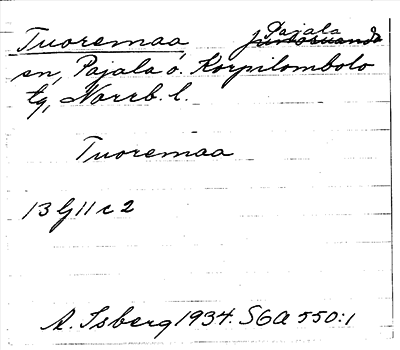 Tuoremaa, Pajala
sn, Pajala o. Korpilombolo
tg, Norrb. l.
Tuoremaa
13 G 11 c 2
A. Isberg 1934. SGA 550:1